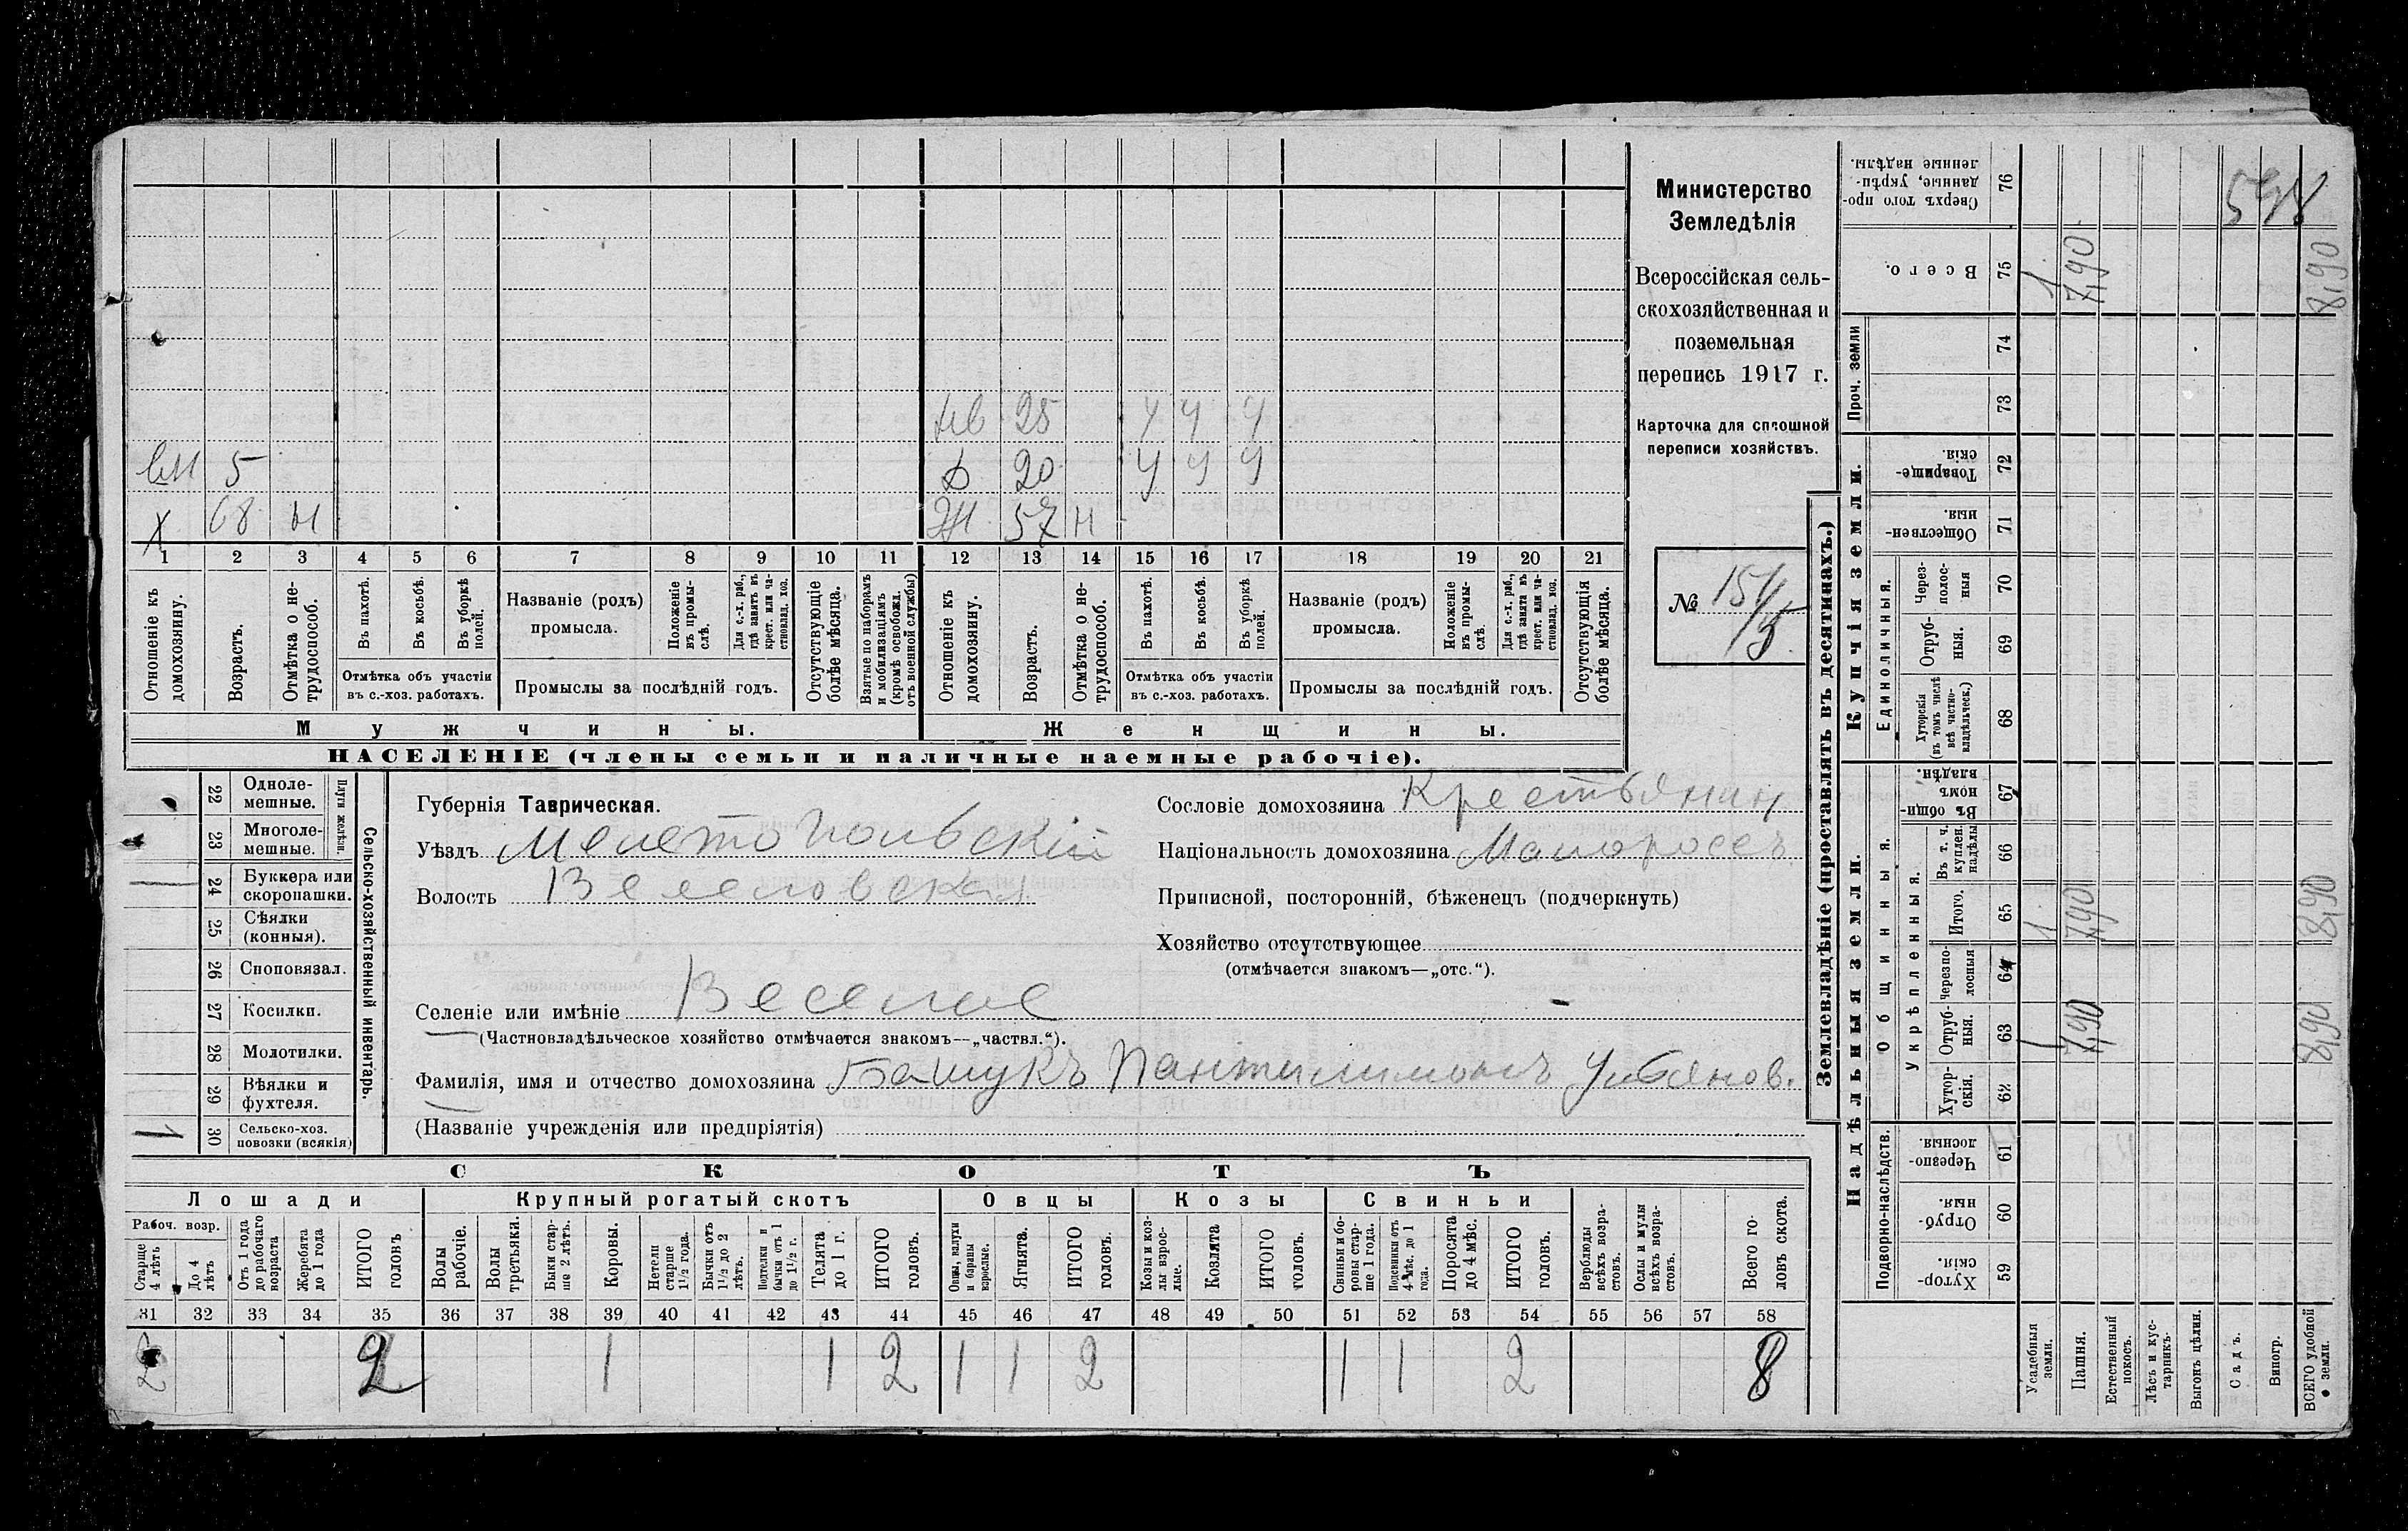 Министерство
Земледѣлія
Всероссійская сель-
скохозяйственная и
поземельная
перепись 1917 г.
Карточка для сплошной
переписи хозяйствъ.
№ 151/
нв 25 ч ч ч
вн 5
д 20 ч ч ч
х 68 н
ж 57 н
1 2 3 4 5 6 7 8 9 10 11 12 13 14 15 16 17 18 19 20 21
Отношеніе къ домохозяину.
Возрастъ.
Отмѣтка о не-трудоспособ.
Въ пахотѣ.
Въ косьбѣ.
Въ уборкѣ полей.
Отмѣтка объ участіи
въ с.-хоз. работахъ.
Названіе (родъ)
промысла.
Положеніе въ промы-слѣ.
Для с.-х. раб., гдѣ занятъ въ крест. или ча-стновлад. хоз.
Промыслы за послѣдній годъ.
Отсутствующіе болѣе мѣсяца.
Взятые по наборамъ и мобилизаціямъ (кромѣ освобожд. отъ военной службы)
Отношеніе къ домохозяину.
Возрастъ.
Отмѣтка о не-трудоспособ.
Въ пахотѣ.
Въ косьбѣ.
Въ уборкѣ полей.
Отмѣтка объ участіи
въ с.-хоз. работахъ.
Названіе (родъ)
промысла.
Положеніе въ промы-слѣ.
Для с.-х. раб., гдѣ занята въ крест. или ча-стновлад. хоз.
Промыслы за послѣдній годъ.
Отсутствующія болѣе мѣсяца.
Мужчины.
Женщины.
НАСЕЛЕНІЕ (члены семьи и наличные наемные рабочіе).
Сельско-хозяйственный инвентарь.
Плуги желѣзн.
22 Одноле-мешные.
23 Многоле-мешные.
24 Буккера или скоропашки.
25 Сѣялки (конныя).
26 Сноповязал.
27 Косилки.
28 Молотилки.
29 Вѣялки и фухтеля.
1 30 Сельско-хоз. повозки (всякія)
Губернія Таврическая.
Уѣздъ Мелетопольскій
Волость Веселовская
Селеніе или имѣніе Веселое
(Частновладѣльческое хозяйство отмѣчается знакомъ—„частвл.“).
Фамилія, имя и отчество домохозяина Башукъ Пантилимонъ Ульянов.
(Названіе учрежденія или предпріятія)
Сословіе домохозяина Крестьянин
Національность домохозяина Малороссъ
Приписной, посторонній, бѣженецъ (подчеркнуть)
Хозяйство отсутствующее
(отмѣчается знакомъ—„отс.“).
СКОТЪ
Лошади
Крупный рогатый скотъ
Овцы
Козы
Свиньи
Рабоч. возр.
Старше 4 лѣтъ
До 4 лѣтъ
Отъ 1 года до рабочаго возраста
Жеребята до 1 года
ИТОГО головъ
Волы рабочіе.
Волы третьяки.
Быки стар-ше 2 лѣтъ.
Коровы.
Нетели старше 1½ года.
Бычки отъ 1½ до 2 лѣтъ.
Подтелки и бычки отъ 1 до 1½ г.
Телята до 1 г.
ИТОГО головъ.
Овцы, валухи и бараны взрослые.
Ягнята.
ИТОГО головъ.
Козы и коз-лы взрос-лые.
Козлята
ИТОГО головъ.
Свиньи и бо-ровы стар-ше 1 года.
Подсвинки отъ 4 мѣс. до 1 года.
Поросята до 4 мѣс.
ИТОГО головъ.
Верблюды всѣхъ возра-стовъ.
Ослы и мулы всѣхъ возра-стовъ.
Всего го-ловъ скота.
31 32 33 34 35 36 37 38 39 40 41 42 43 44 45 46 47 48 49 50 51 52 53 54 55 56 57 58
2 2 1 1 2 1 1 2 1 1 2 8
Землевладѣніе (проставлять въ десятинахъ.)
Надѣльныя земли.
Купчія земли.
Проч. земли
Подворно-наслѣдств.
Общинныя.
Укрѣпленныя.
Единоличныя.
Сверхъ того про-данные, укрѣп-ленные надѣлы. 76
Всего. 75
74
73
Товарище-скія 72
Обществен-ныя. 71
Через-полос-ныя 70
Отруб-ныя. 69
Хуторскія (въ томъ числѣ всѣ частно-владѣльческ.) 68
Въ общин-номъ владѣн. 67
Въ т. ч. куплен. надѣлы 66
Итого. 65
Черезпо-лосныя 64
Отруб-ныя. 63
Хутор-скія. 62
Черезпо-лосныя. 61
Отруб-ныя. 60
Хутор-скія. 59
Усадебныя земли.
Пашня.
Естественный покосъ.
Лѣсъ и кус-тарникъ.
Выгонъ цѣлин.
Садъ.
Виногр.
ВСЕГО удобной земли.
1 7,90 8,90
1 7,90 8,90
1 7,90 8,90